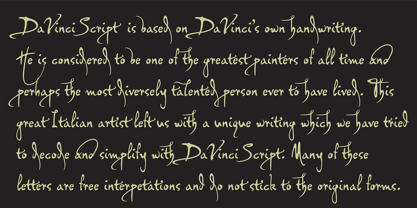 DaVinciScript is based on DaVinci's own handwriting.
He is considered to be one of the greatest painters of all time and
perhaps the most diversely talented person ever to have lived. This
great Italian artist left us with a unique writing which we have tried
to decode and simplify with DaVinciScript. Many of these
letters are free interpetations and do not stick to the original forms.